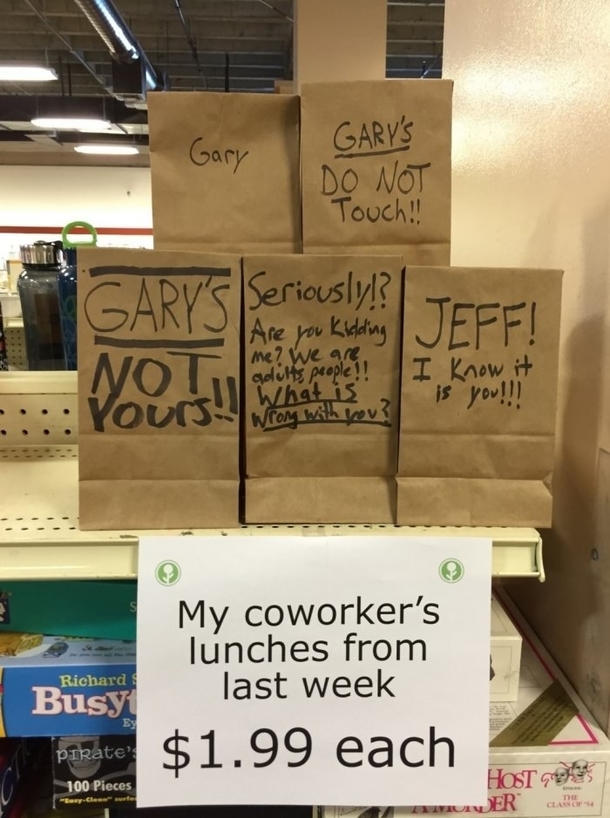 Gary
GARY'S
DO NOT
Touch!!
GARY'S
NOT
Yours!!
Seriously!?
Are you Kidding
me? We are
adults people!!
What is
Wrong with you?
JEFF!
I Know it
is you!!!
My coworker's
lunches from
last week
$1.99 each
Richard S
Busyt
Ey
PIRate's
100 Pieces
HOST
THE
CLASS OF '54